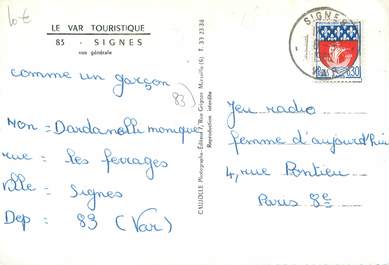 10€
LE VAR TOURISTIQUE
83 - SIGNES
vue générale
comme un garçon
83)
Nom = Dardanelli monique
rue = les ferrages
Ville = Signes
Dep = 83 (Var)
CAUJOLLE Photographe-Éditeur 7, Rue Grignan Marseille (6) T. 33 23-36
Reproduction interdite
SIGNES
VAR
0,30
Jeu radio
femme d'aujourd'hui
4, rue Pontieu
Paris 8e